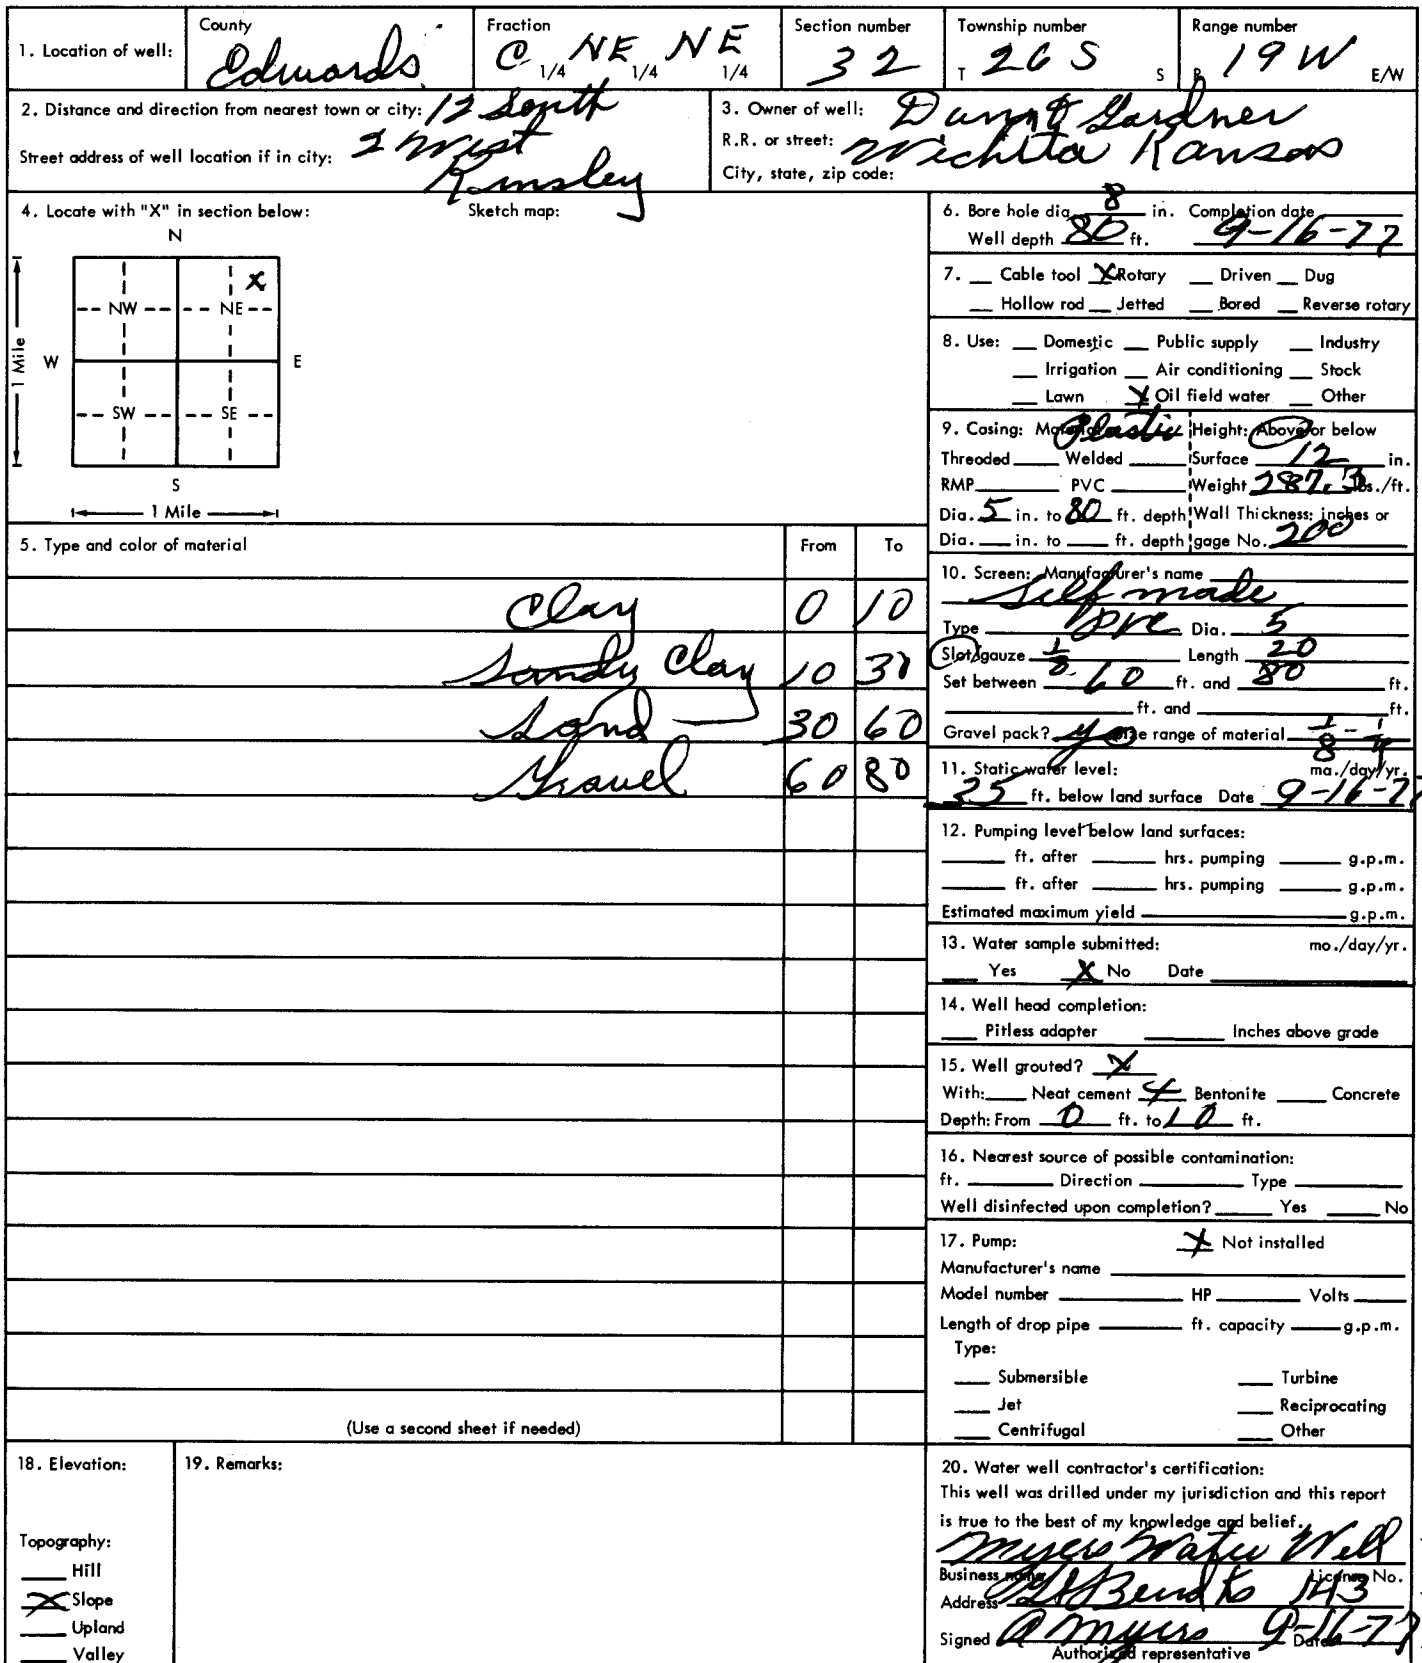 1. Location of well: County Edwards Fraction C 1/4 NE 1/4 NE 1/4 Section number 32 Township number T 26 S S Range number R 19 W E/W
2. Distance and direction from nearest town or city: 12 South
2 West
Street address of well location if in city:
Kinsley
3. Owner of well: Gardner
R.R. or street: Wichita Kansas
City, state, zip code:
4. Locate with "X" in section below: Sketch map:
N
X
NW NE
W E
1 Mile
SW SE
S
1 Mile
5. Type and color of material From To
Clay 0 10
Sandy Clay 10 30
Sand 30 60
Gravel 60 80
(Use a second sheet if needed)
6. Bore hole dia. 8 in. Completion date
Well depth 80 ft. 9-16-77
7. Cable tool X Rotary Driven Dug
Hollow rod Jetted Bored Reverse rotary
8. Use: Domestic Public supply Industry
Irrigation Air conditioning Stock
Lawn X Oil field water Other
9. Casing: Material Plastic Height: Above or below
Threaded Welded Surface 12 in.
RMP PVC Weight 287.3 lbs./ft.
Dia. 5 in. to 80 ft. depth Wall Thickness: inches or
Dia. in. to ft. depth gage No. 200
10. Screen: Manufacturer's name
Self made
Type PVC Dia. 5
Slot/gauze 1/8 Length 20
Set between 60 ft. and 80 ft.
ft. and ft.
Gravel pack? yes Size range of material 1/8 - 1/4
11. Static water level: mo./day/yr.
35 ft. below land surface Date 9-16-77
12. Pumping level below land surfaces:
ft. after hrs. pumping g.p.m.
ft. after hrs. pumping g.p.m.
Estimated maximum yield g.p.m.
13. Water sample submitted: mo./day/yr.
Yes X No Date
14. Well head completion:
Pitless adapter Inches above grade
15. Well grouted? X
With: Neat cement X Bentonite Concrete
Depth: From 0 ft. to 10 ft.
16. Nearest source of possible contamination:
ft. Direction Type
Well disinfected upon completion? Yes No
17. Pump: X Not installed
Manufacturer's name
Model number HP Volts
Length of drop pipe ft. capacity g.p.m.
Type:
Submersible Turbine
Jet Reciprocating
Centrifugal Other
18. Elevation:
Topography:
Hill
X Slope
Upland
Valley
19. Remarks:
20. Water well contractor's certification:
This well was drilled under my jurisdiction and this report
is true to the best of my knowledge and belief.
Myers Water Well
Business name License No.
Address Gt Bend Ks 143
Signed A Myers 9-16-77 Date
Authorized representative